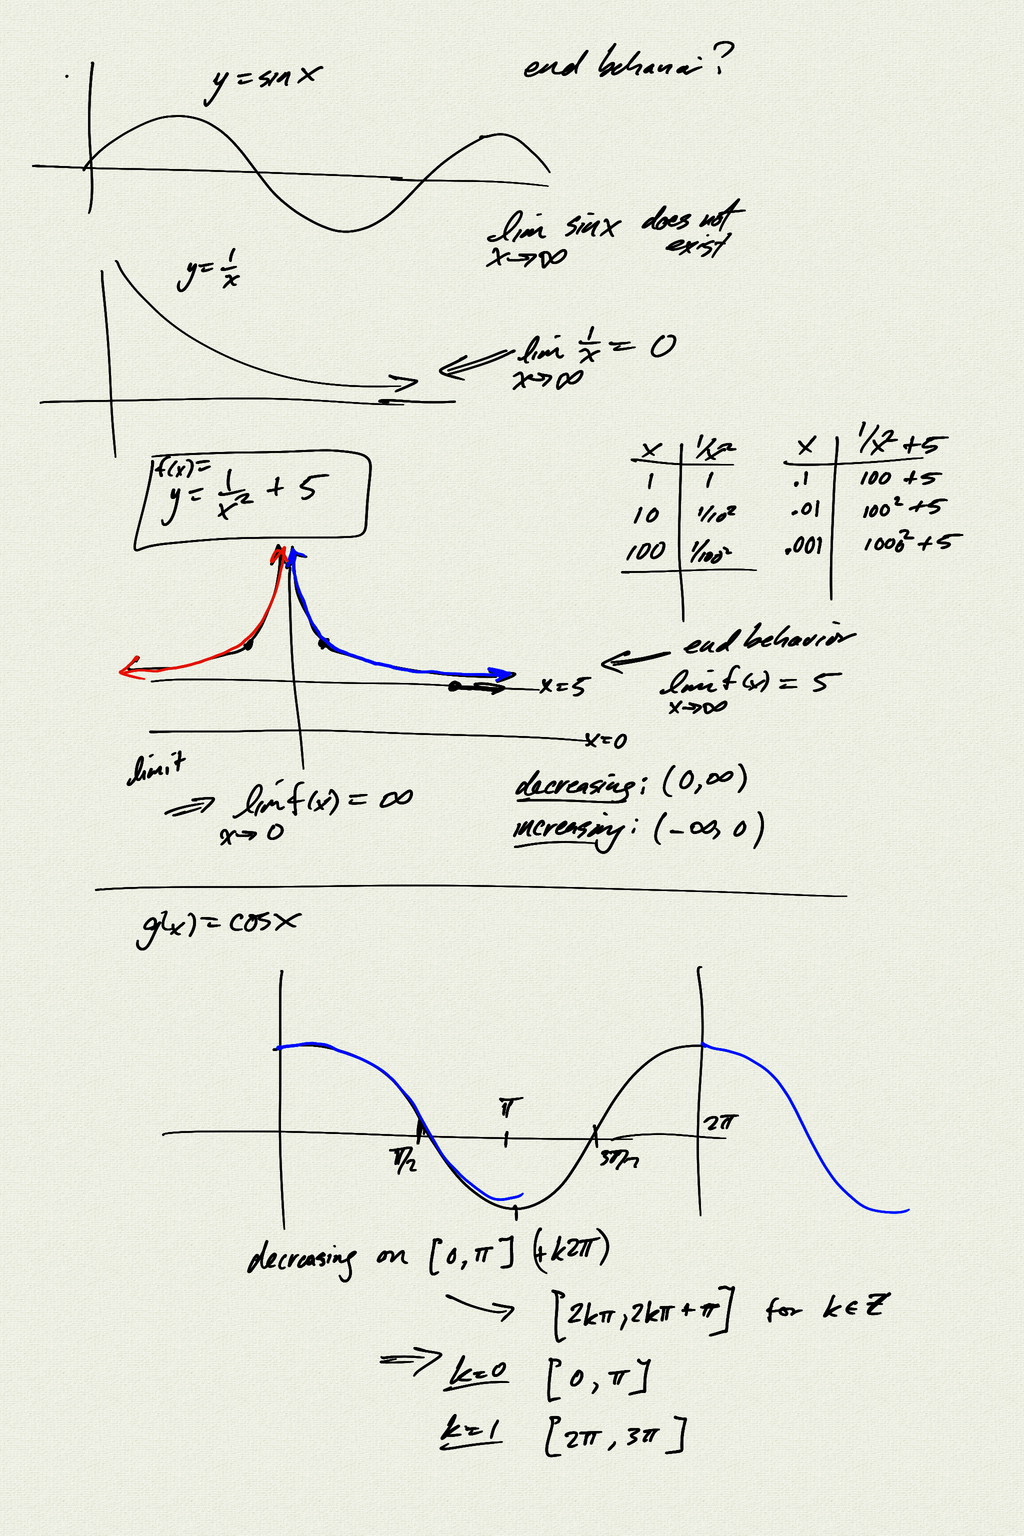 y = sin x
end behavior?
lim sin x does not
x→∞ exist
y = 1/x
lim 1/x = 0
x→∞
f(x)=
y = 1/x² + 5
x | 1/x²
1 | 1
10 | 1/10²
100 | 1/100²
x | 1/x² + 5
.1 | 100 + 5
.01 | 100² + 5
.001 | 1000² + 5
end behavior
x = 5
lim f(x) = 5
x→∞
x=0
limit
⇒ lim f(x) = ∞
x→0
decreasing: (0,∞)
increasing: (-∞, 0)
g(x) = cos x
π
2π
π/2
3π/2
decreasing on [0, π] (+k2π)
→ [2kπ, 2kπ + π] for k∈Z
⇒ k=0 [0, π]
k=1 [2π, 3π]